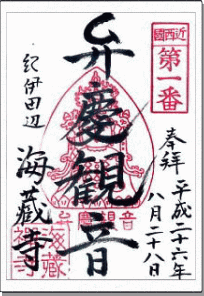 近西国
第一番
奉拝 平成二十六年
八月二十八日
弁慶観音
紀伊田辺
海蔵寺
海蔵禅寺